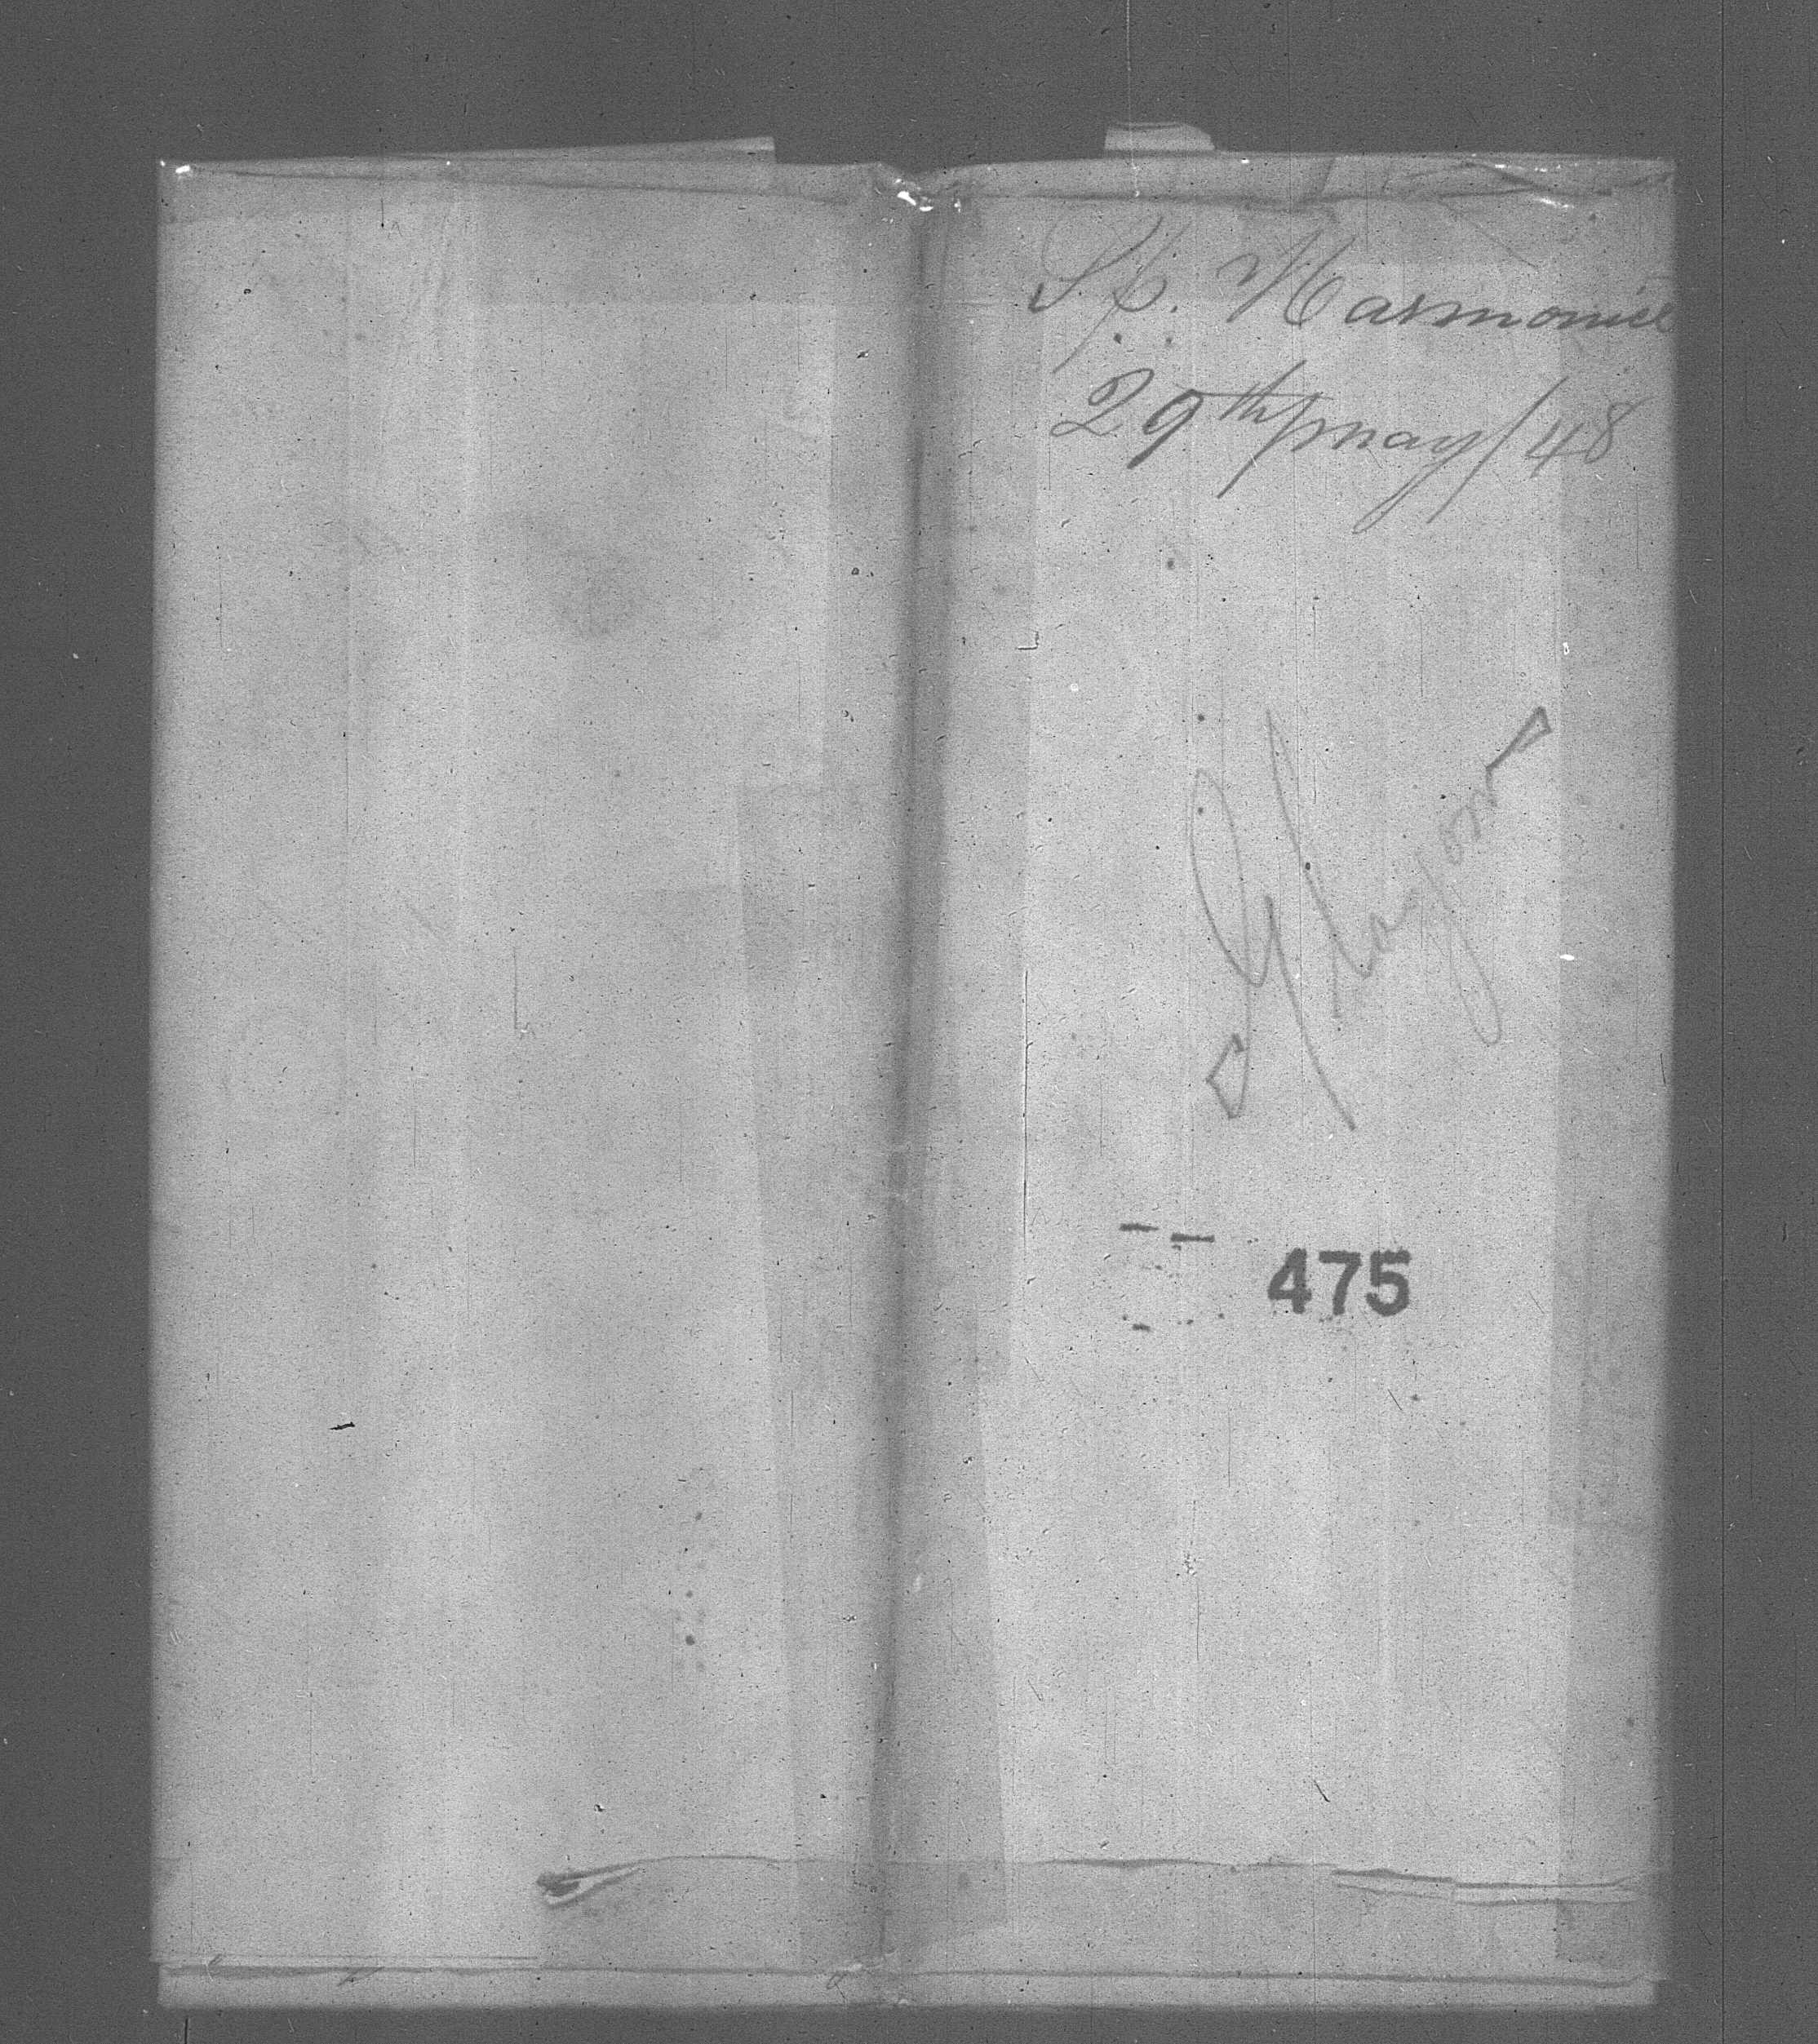 Sp. Harmonie
29th/may/48
Glasgow
475